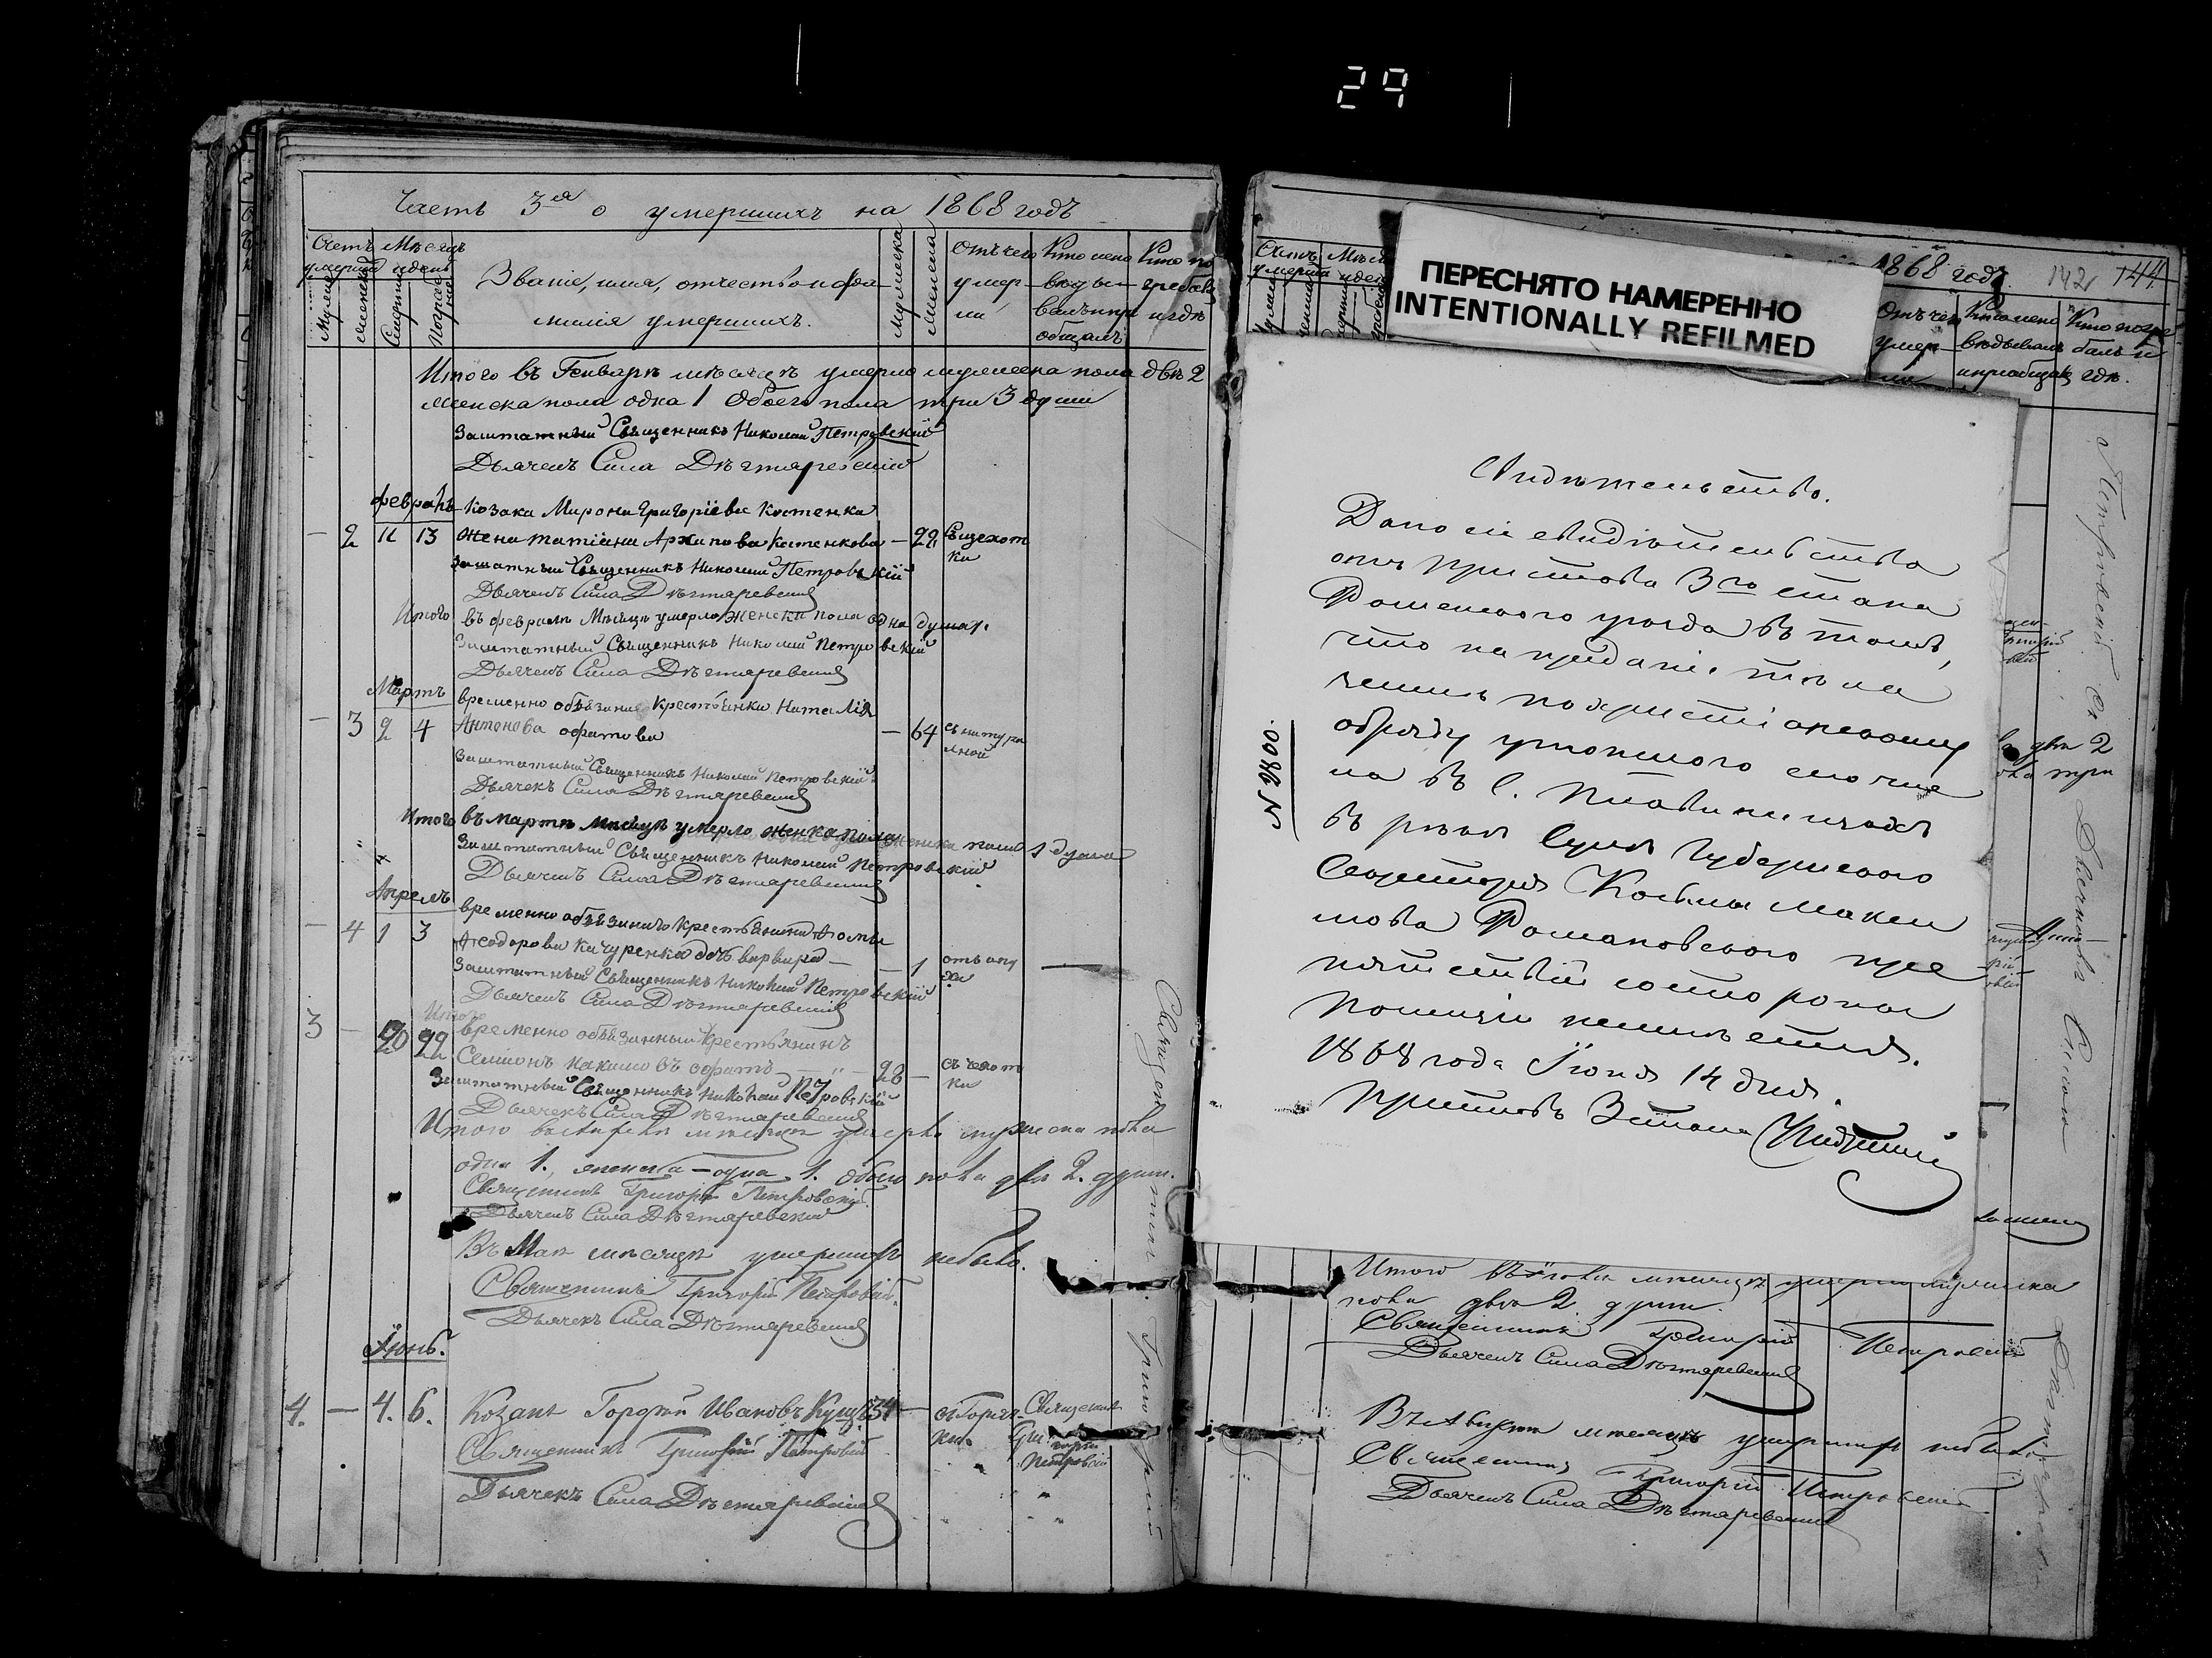 29
Часть 3ая о умершихъ на 1868 годъ
Счетъ умерш Мѣсяцъ и день
Мужеска
женска
Смерти
Погребен
Званіе, имя, отчество и фа
милія умершихъ.
Мужеска
Женска
Отъ чего
умер
ли
Кто испо
вѣды
валъ и пр
общалъ
Кто по
гребалъ
и гдѣ
Итого въ Генварѣ мѣсяцѣ умерло мужеска пола двѣ 2
женска пола одна 1 Обоего пола три 3 души
Заштатный Священникъ Николай Петровскій
Дьячекъ Сила Дѣгтяревскій
февраль
козака Мирона Григоріева Костенка
— 2 11 13 жена татіана Архипова Костенкова — 22 Съ чехот
ки
Заштатный Священникъ Николай Петровскій
Дьячекъ Сила Дѣгтяревскій
Итого въ февралѣ Мѣсяцѣ умерло женска пола одна душа 1.
Заштатный Священникъ Николай Петровскій
Дьячекъ Сила Дѣгтяревскій
Мартъ
временно обязаная крестьянка Наталія
— 3 2 4 Антонова — 64 съ натура
лной
Заштатный Священникъ Николай Петровскій
Дьячекъ Сила Дѣгтяревскій
Итого въ мартѣ мѣсяцѣ умерло женска пола 1 душа
Заштатный Священникъ Николай Петровскій
Дьячекъ Сила Дѣгтяревскій
Апрель
временно обязанаго крестьянина Фомы
— 4 1 3 Феодорова Качуренка дочь варвара — — 1 отъ опу
ха
Заштатный Священникъ Николай Петровскій
Дьячекъ Сила Дѣгтяревскій
Итого
3 — 20 22 временно обязанный крестьянинъ
Семіонъ 28 — съ чехот
ки
Заштатный Священникъ Николай Петровскій
Дьячекъ Сила Дѣгтяревскій
Итого въ апрелѣ мѣсяцѣ умерло мужеска пола
одна 1., женска — одна 1. обоего пола двѣ 2. души.
Священникъ Григорій Петровскій
Дьячекъ Сила Дѣгтяревскій
Въ Маѣ мѣсяцѣ умершихъ небыло.
Священникъ Григорій Петровскій.
Дьячекъ Сила Дѣгтяревскій
Іюнь.
4. — 4. 6. Козакъ Гордѣй Ивановъ 54 — отъ Горяч
ки. Священникъ
Григорій
Петровскій
Священникъ Григорій Петровскій
Дьячекъ Сила Дѣгтяревскій
Священникъ Григорій
Петровскій Дьячекъ Сила
ПЕРЕСНЯТО НАМЕРЕННО
INTENTIONALLY REFILMED
1868 годъ. 142 144
Счетъ Мѣс
умерш и ден
Отъ чего
умер
ли
Кто испо
вѣдывалъ
и пріобщалъ
Кто погре
балъ и
гдѣ.
Свидѣтельство.
Дано сіе свидѣтельство
отъ пристава 3го стана
Роменского уѣзда въ томъ,
что на преданіе тѣла
земли по христіанскому
обряду утопшаго
въ с.
въ рѣкѣ Сулѣ Губернского
Секретаря Козьмы Макси
мова Романовского пре
пятствій со стороны
полиціи неимѣется.
1868 года Іюня 14 дня.
Приставъ 3 стана
N 2800.
двѣ 2
три
Итого въ Іюлѣ мѣсяцѣ умерло мужеска
пола двѣ 2 души.
Священникъ Григорій Петровскій
Дьячекъ Сила Дѣгтяревскій
Въ Августѣ мѣсяцѣ умершихъ небыло
Священникъ Григорій Петровскій
Дьячекъ Сила Дѣгтяревскій